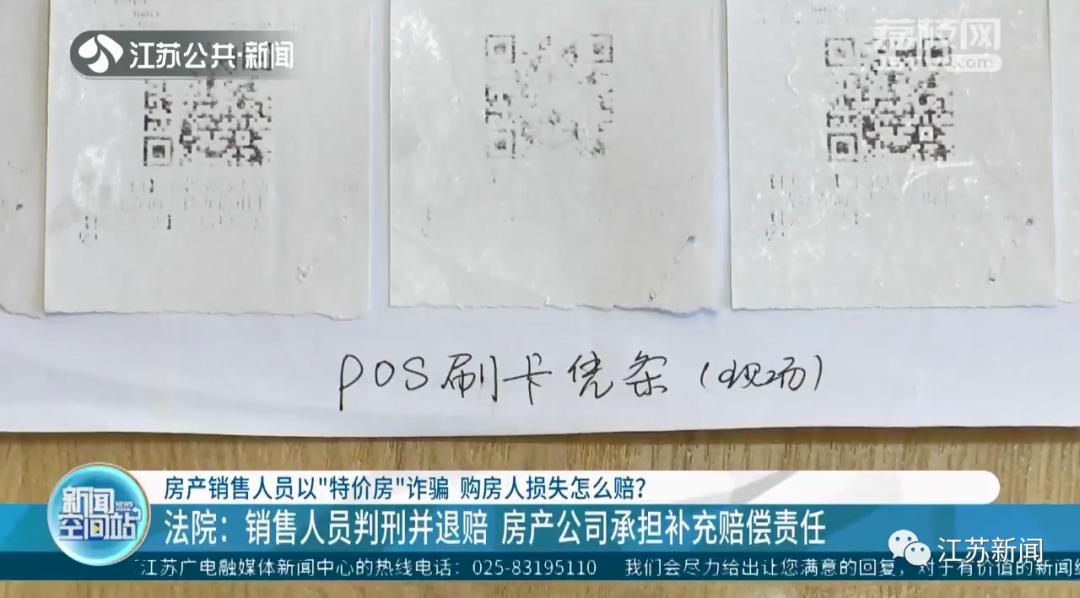 江苏公共·新闻
荔枝网
POS刷卡凭条（现场）
新闻
NEWS
空间站
房产销售人员以"特价房"诈骗 购房人损失怎么赔？
法院：销售人员判刑并退赔 房产公司承担补充赔偿责任
江苏新闻
江苏广电融媒体新闻中心的热线电话：025-83195110 我们会尽力给出让您满意的回复，对于有价值的新闻